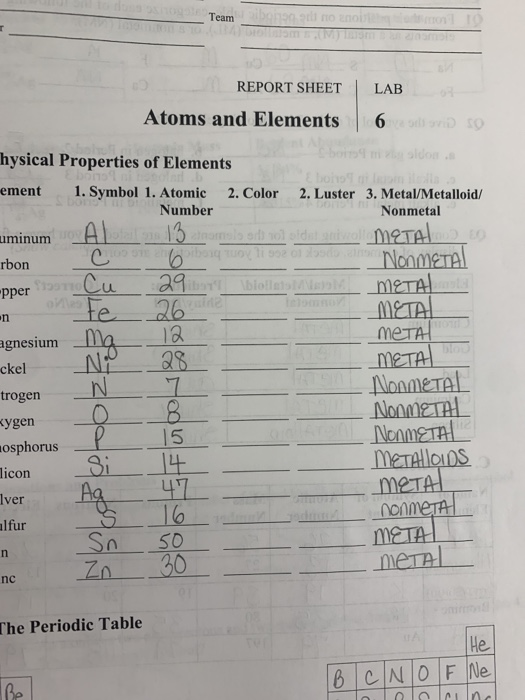 Team
REPORT SHEET LAB
Atoms and Elements 6
hysical Properties of Elements
ement 1. Symbol 1. Atomic Number 2. Color 2. Luster 3. Metal/Metalloid/ Nonmetal
uminum Al 13 METAl
rbon C 6 NonmeTAl
pper Cu 29 METAl
n Fe 26 METAl
agnesium Mg 12 meTAl
ckel Ni 28 METAl
trogen N 7 NonmeTAl
xygen O 8 NonmeTAl
osphorus P 15 NonmeTAl
licon Si 14 METAlloIDS
lver Ag 47 meTAl
ulfur S 16 nonmeTAl
n Sn 50 meTAl
nc Zn 30 meTAl
The Periodic Table
He
B C N O F Ne
Be